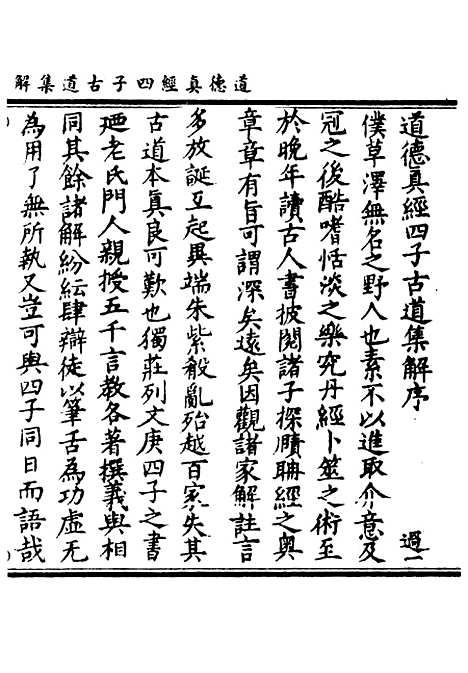 道德真經四子古道集解
道德真經四子古道集解序　過一
僕草澤無名之野人也素不以進取介意及
冠之後酷嗜恬淡之樂究丹經卜筮之術至
於晚年讀古人書披閱諸子探賾聃經之奥
章章有旨可謂深矣遠矣因觀諸家解註言
多放誕互起異端朱紫殽亂殆越百家失其
古道本真良可歎也獨莊列文庚四子之書
廼老氏門人親授五千言教各著撰義與相
同其餘諸解紛紜肆辯徒以筆舌為功虛无
為用了無所執又豈可與四子同日而語哉